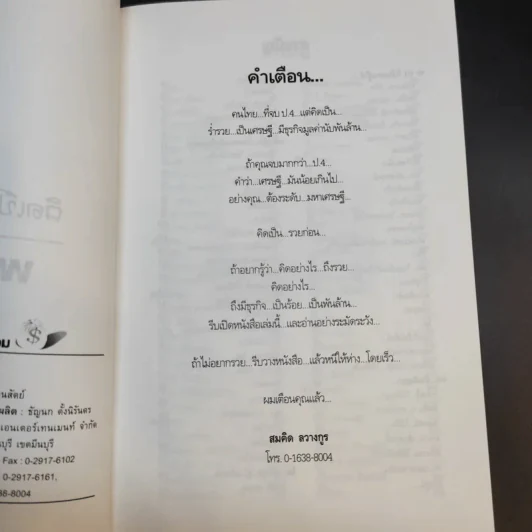 คำเตือน...
คนไทย...ที่จบ ป.4...แต่คิดเป็น...
ร่ำรวย...เป็นเศรษฐี...มีธุรกิจมูลค่านับพันล้าน...
ถ้าคุณจบมากกว่า...ป.4...
คำว่า...เศรษฐี...มันน้อยเกินไป...
อย่างคุณ...ต้องระดับ...มหาเศรษฐี...
คิดเป็น...รวยก่อน...
ถ้าอยากรู้ว่า...คิดอย่างไร...ถึงรวย...
คิดอย่างไร...
ถึงมีธุรกิจ...เป็นร้อย...เป็นพันล้าน...
รีบเปิดหนังสือเล่มนี้...และอ่านอย่างระมัดระวัง...
ถ้าไม่อยากรวย...รีบวางหนังสือ...แล้วหนีให้ห่าง...โดยเร็ว...
ผมเตือนคุณแล้ว...
สมคิด ลวางกูร
โทร. 0-1638-8004
นสัตย์
ผลิต : ธัญนก ตั้งนิรันดร
เอนเตอร์เทนเมนท์ จำกัด
บุรี เขตมีนบุรี
Fax : 0-2917-6102
0-2917-6161,
38-8004